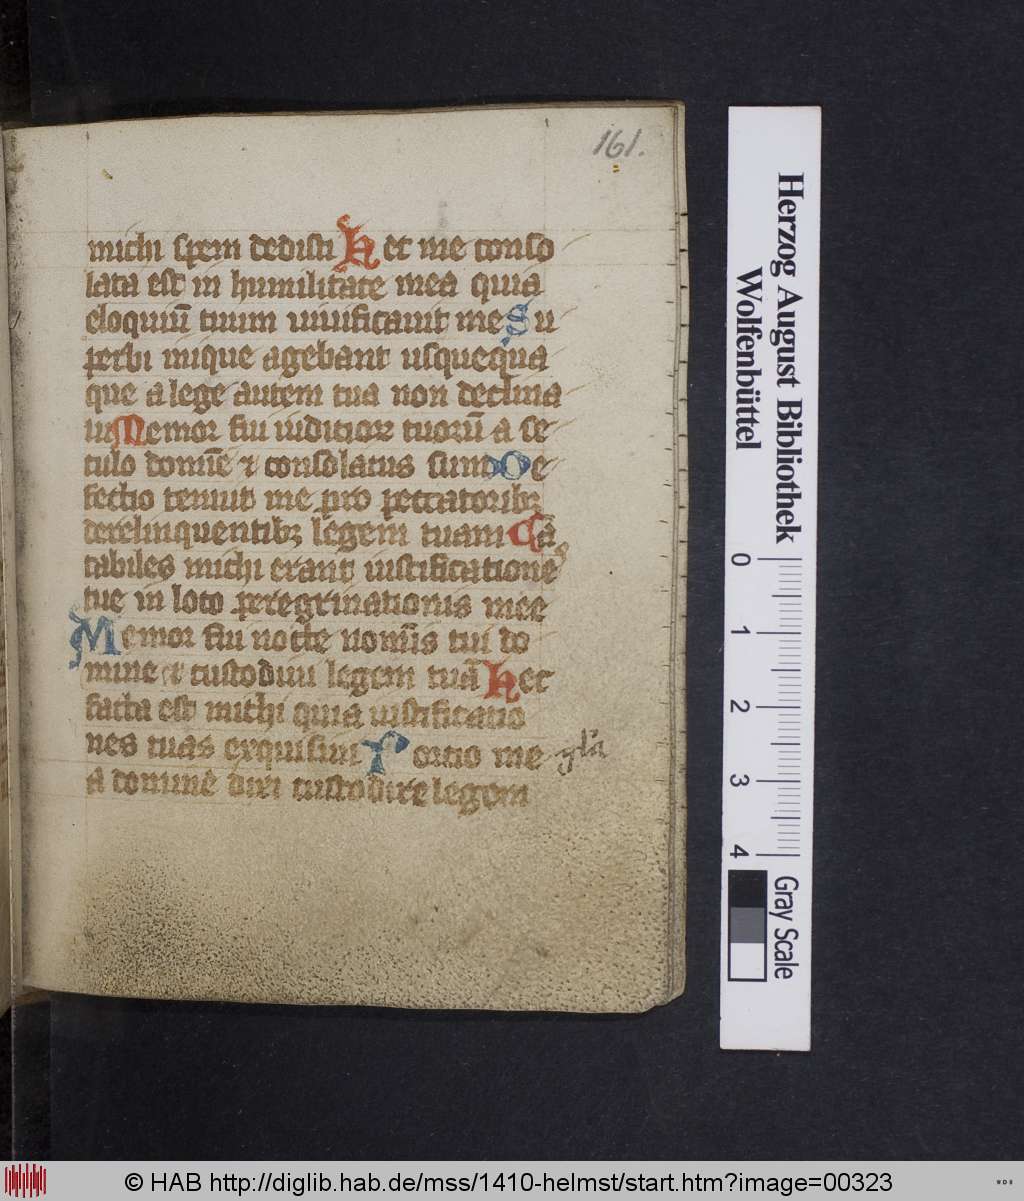 161.
michi spem dedisti Hec me conso
lata est in humilitate mea quia
eloquiū tuum uiuificauit me Su
perbi inique agebant usquequa
que a lege autem tua non declina
ui Memor fui iudicioꝝ tuorū a se
culo domīe ⁊ consolatus sum De
fectio tenuit me pro peccatoribꝫ
derelinquentibꝫ legem tuam Cā
tabiles michi erant iustificatione⁹
tue in loco peregrinationis mee
Memor fui nocte nomīs tui do
mine et custodiui legem tuā Hec
facta est michi quia iustificatio
nes tuas exquisiui Portio me
a domine dixi custodire legem
gl'a
Herzog August Bibliothek
Wolfenbüttel
0 1 2 3 4
Gray Scale
© HAB http://diglib.hab.de/mss/1410-helmst/start.htm?image=00323